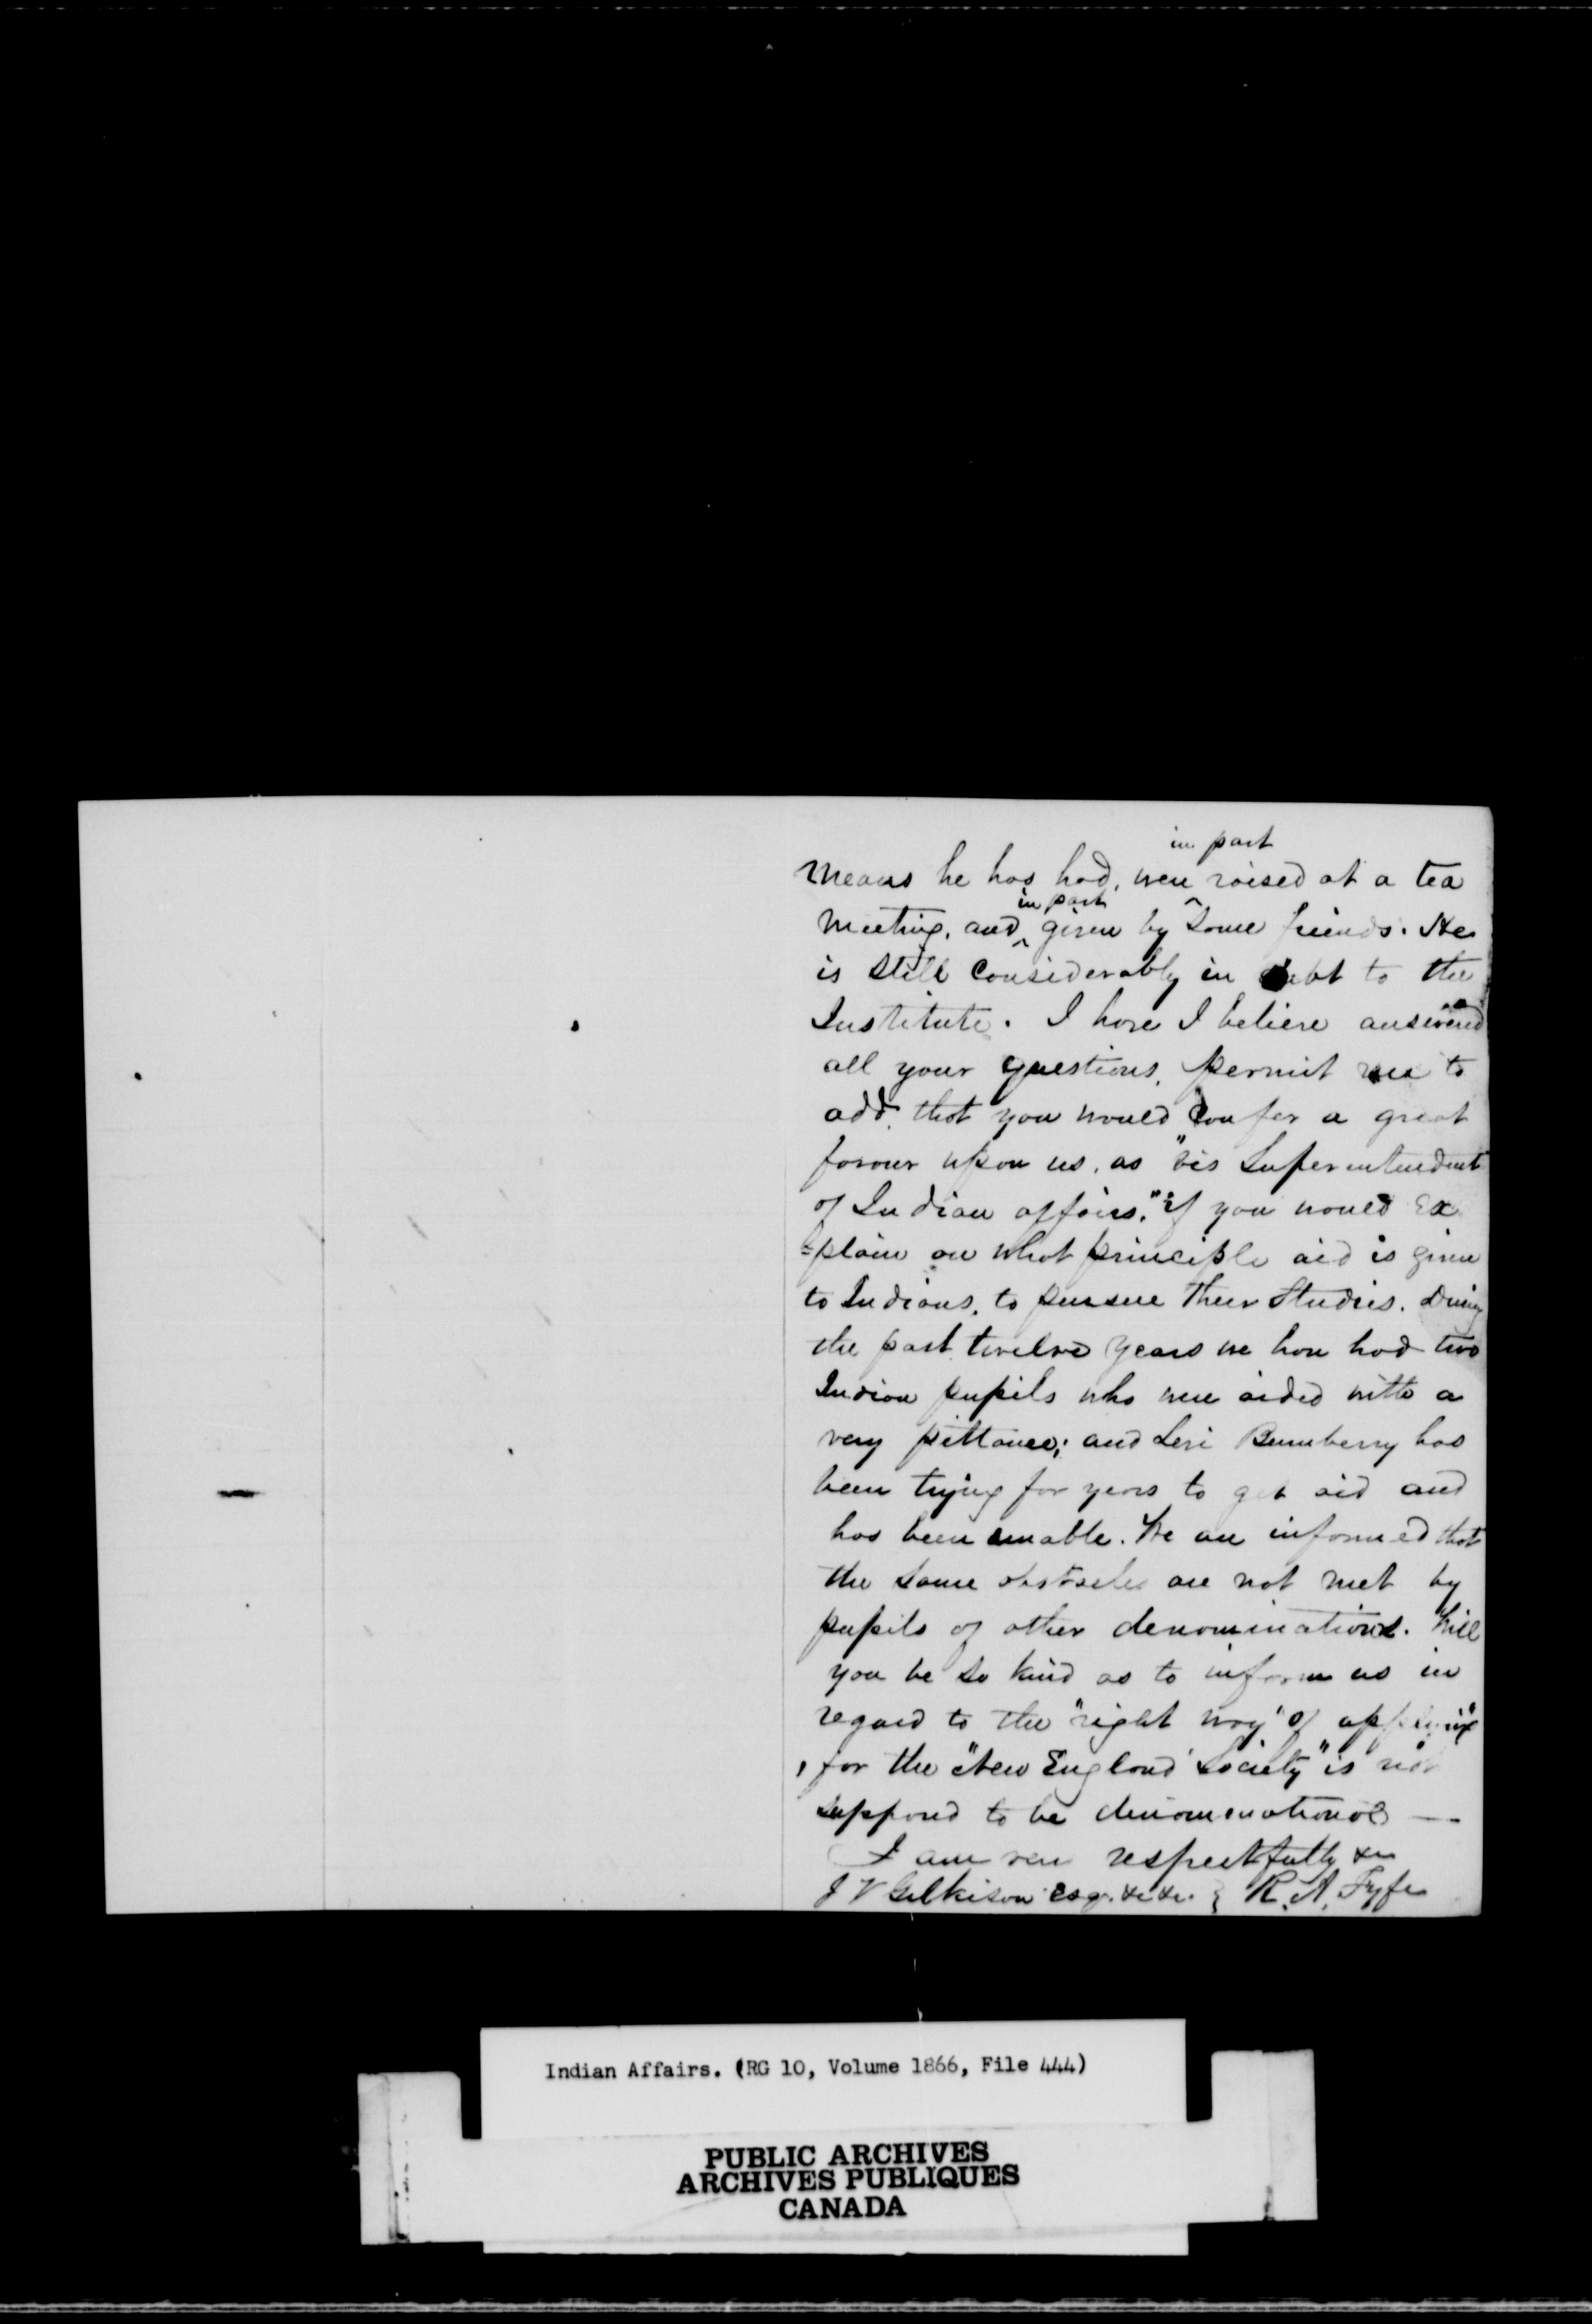 in part
means he has had, were ^ raised at a tea
in part
meeting, and ^ given by some friends. He
is still considerably in debt to the
Institute. I have I believe answered
all your questions, permit me to
add, that you would confer a great
favour upon us, as "vis Superintendent
of Indian affairs," if you would ex
=plain on what principle aid is given
to Indians, to pursue their studies. During
the past twelve years we have had two
Indian pupils who were aided with a
very pittance; and Levi Bumberry has
been trying for years to get aid and
has been unable. We are informed that
the same obstacles are not met by
pupils of other denominations. Will
you be so kind as to inform us in
regard to the "right way" of applying"
, for the "New England Society" is not
supposed to be denominational —
I am very respectfully &c
J V Gilkison Esqr. &c &c. R. A. Fyfe
Indian Affairs. (RG 10, Volume 1866, File 444)
PUBLIC ARCHIVES
ARCHIVES PUBLIQUES
CANADA